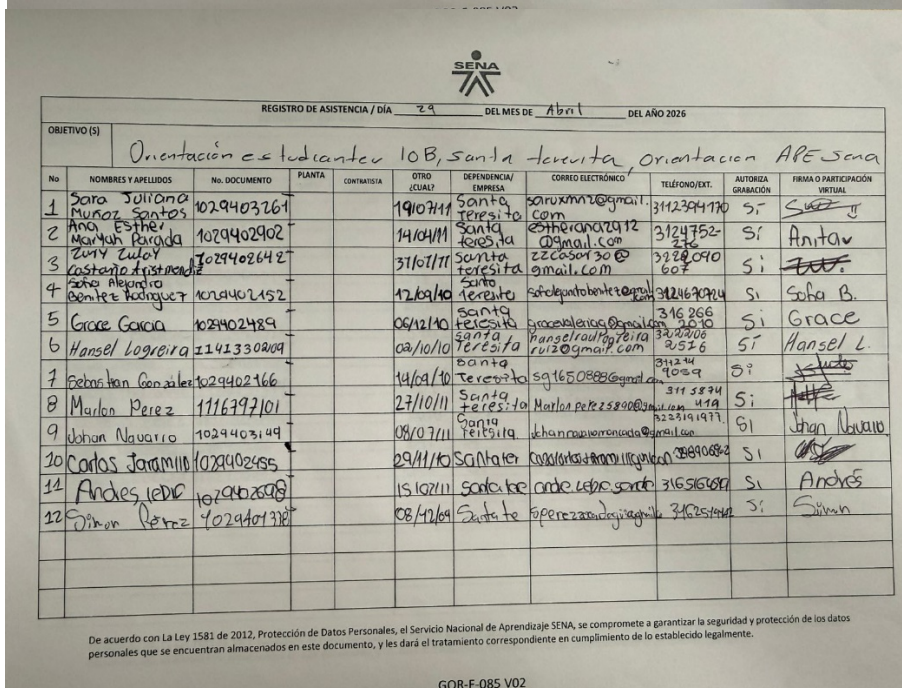 GOR-F-085 V02
SENA
REGISTRO DE ASISTENCIA / DÍA 29 DEL MES DE Abril DEL AÑO 2026
OBJETIVO (S)
Orientación estudiantes 10B, Santa teresita, Orientacion APE Sena
No NOMBRES Y APELLIDOS No. DOCUMENTO PLANTA CONTRATISTA OTRO ¿CUAL? DEPENDENCIA/ EMPRESA CORREO ELECTRÓNICO TELÉFONO/EXT. AUTORIZA GRABACIÓN FIRMA O PARTICIPACIÓN VIRTUAL
1 Sara Juliana Muñoz Santos 1029403261 19/07/11 Santa Teresita saruxmnz@gmail.com 3112394170 Si
2 Ana Esther Maryuh Parada 1029402902 14/04/11 Santa teresita estherana2912@gmail.com 3124752-276 Sí Anita
3 Zury Zulay Castaño Aristmendiz 1029402642 31/07/11 Santa teresita zzcasar30@gmail.com 3228090607 Si
4 Sofia Alejandra Benitez Rodriguez 1029402152 12/09/10 Santa Teresita 3124670724 Si Sofia B.
5 Grace Garcia 1029402489 06/12/10 Santa teresita gracevaleriag@gmail.com 316 266 2010 Si Grace
6 Hansel Logreira 11413330209 02/10/10 Santa Teresita ruiz@gmail.com 3222206 2516 Sí Hansel L.
7 Sebastian González 1029402166 14/09/10 Santa Teresita sg1650888@gmail.com 311214 9089 Si
8 Marlon Perez 1116797101 27/10/11 Santa teresita Marlonperez5890@gmail.com 311 5874 419 Si
9 Johan Navarro 1029403149 08/07/11 Santa teresita. johannavarromoncada@gmail.com 3223191977. Si Johan Navarro
10 Carlos Jaramillo 1029402455 29/11/10 Santater Si
11 Andres 1029402698 15/02/11 Santa te Si Andrés
12 Simon Pérez 1029401338 08/12/09 Santa te Si Simon
De acuerdo con La Ley 1581 de 2012, Protección de Datos Personales, el Servicio Nacional de Aprendizaje SENA, se compromete a garantizar la seguridad y protección de los datos
personales que se encuentran almacenados en este documento, y les dará el tratamiento correspondiente en cumplimiento de lo establecido legalmente.
GOR-F-085 V02